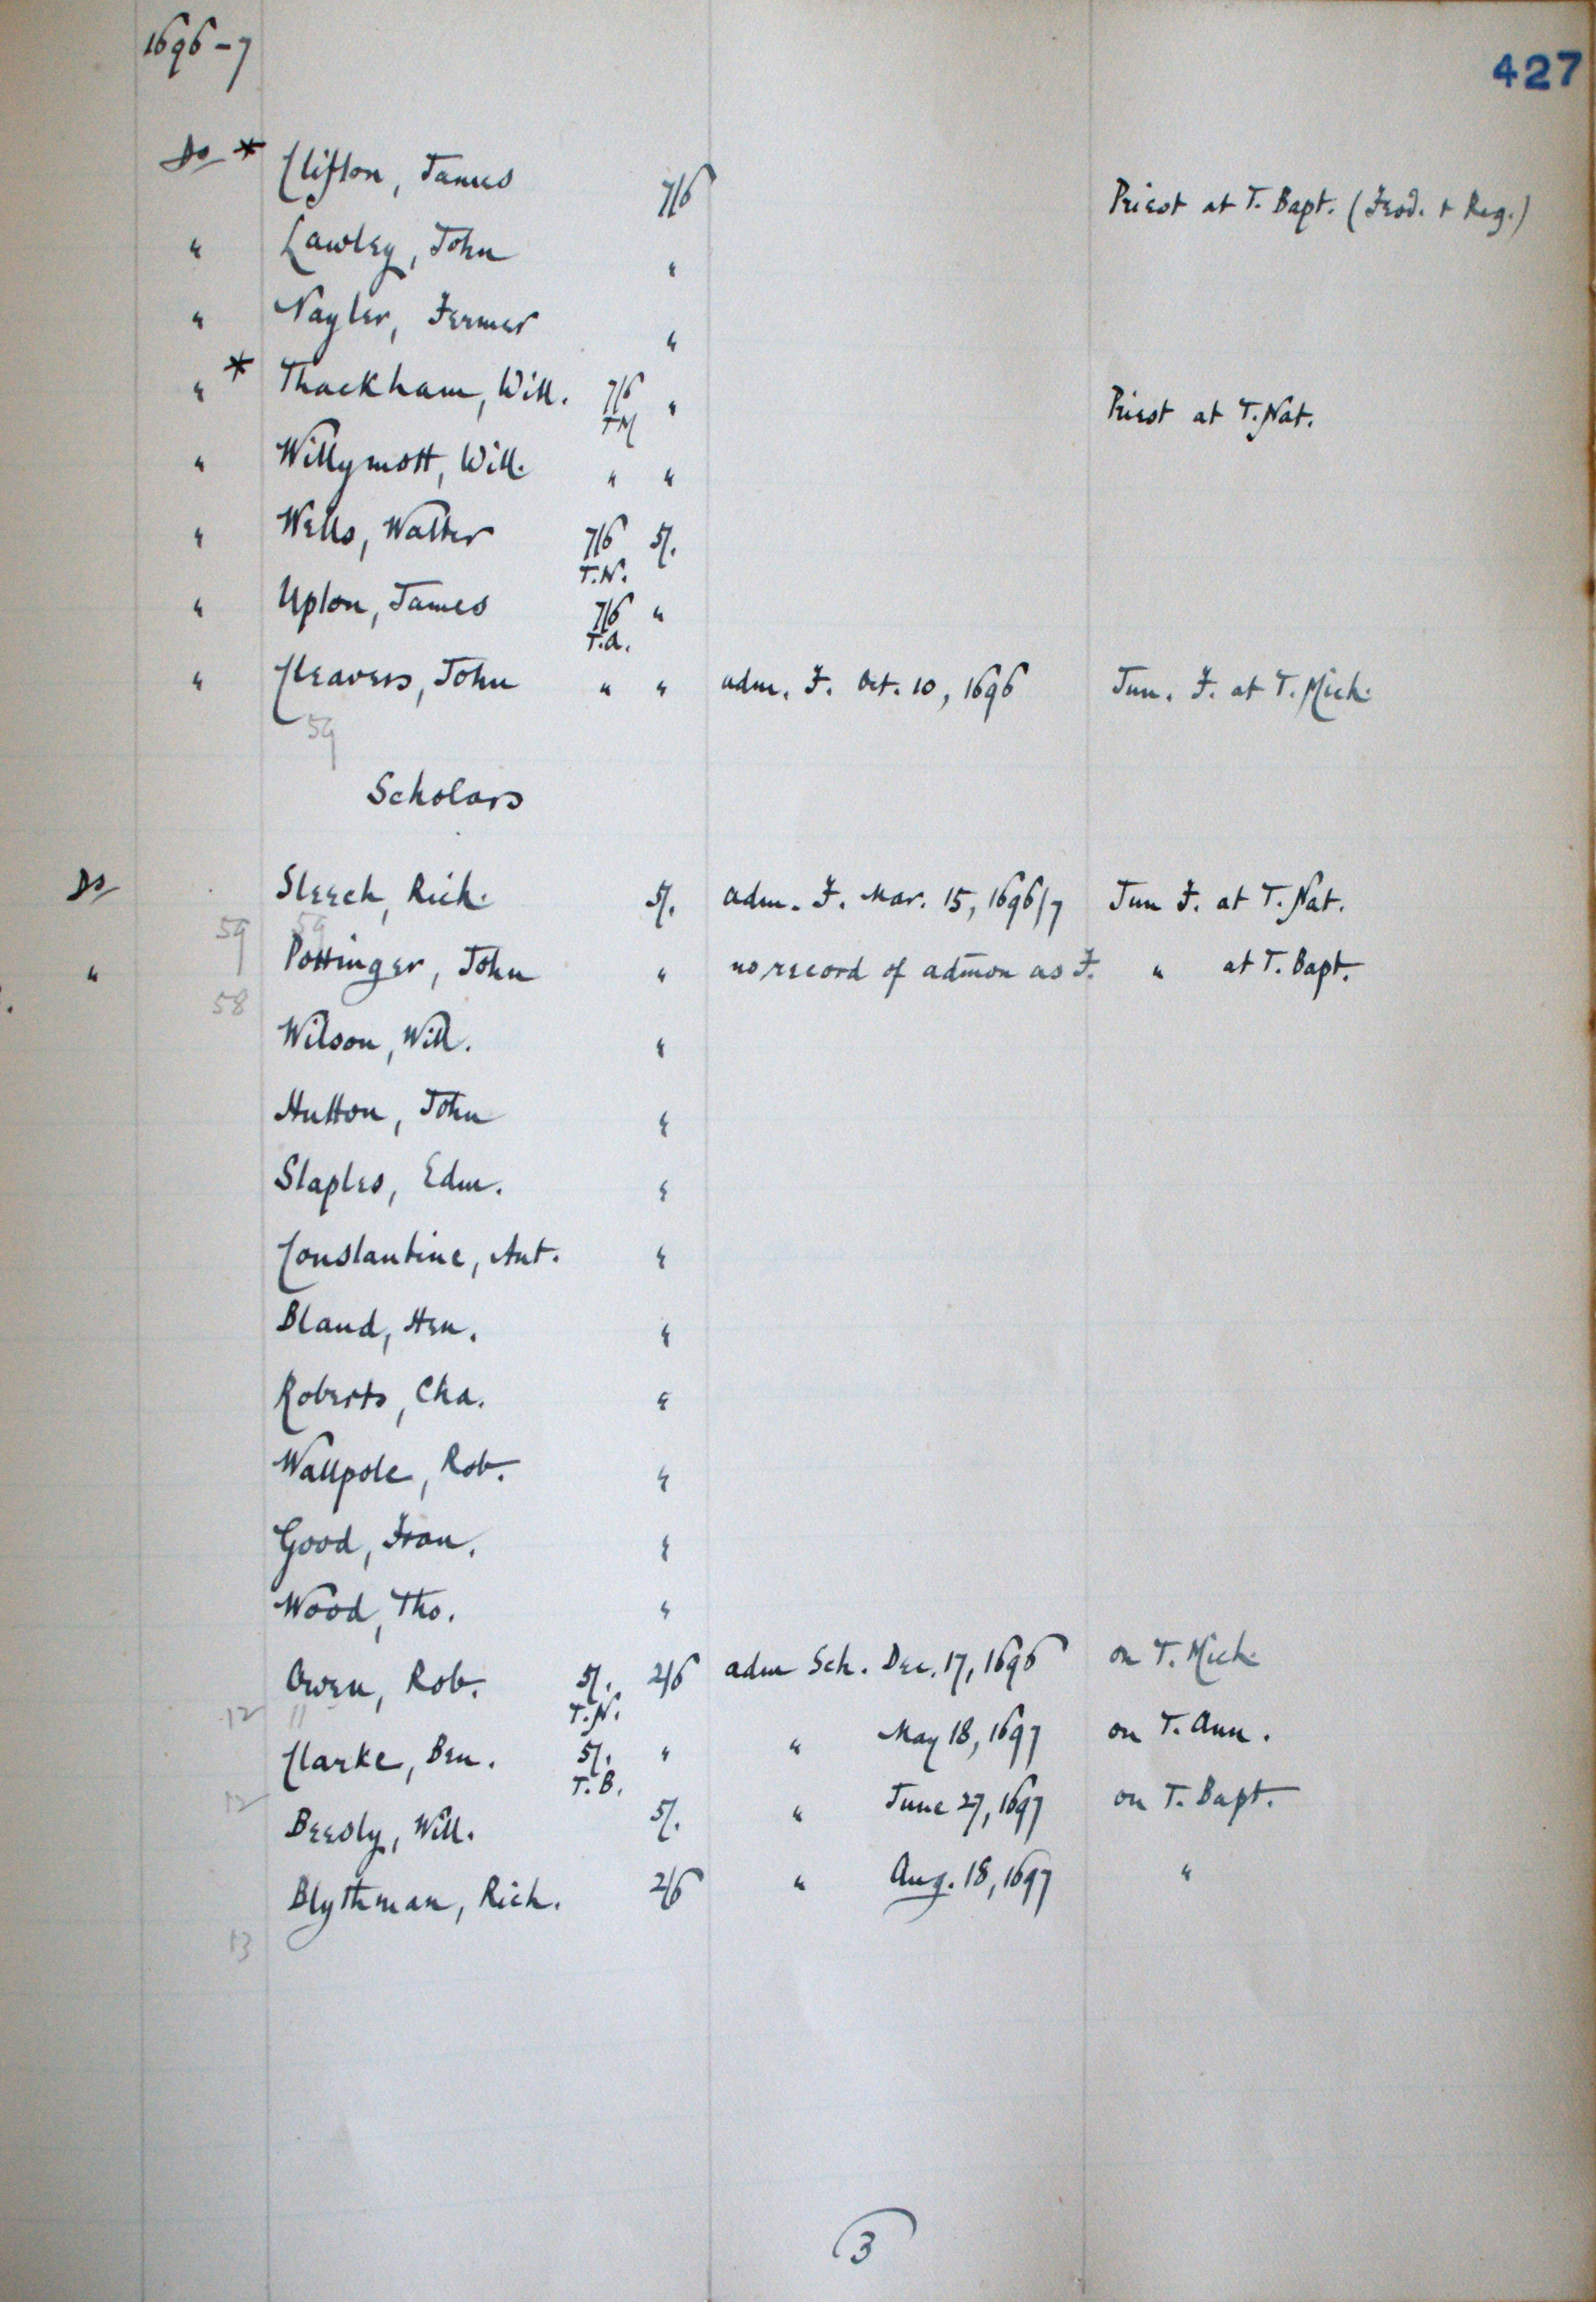 1696-7
427
Do * Clifton, James 7/6 Priest at T. Bapt. (Feod. + Reg.)
" Lawley, John "
" Nayler, Fermer "
" * Thackham, Will. 7/6 " Priest at T. Nat.
T M
" Willymott, Will. " "
" Wells, Walter 7/6 5/.
T.N.
" Upton, James 7/6 "
T.A.
" Cleavers, John " " adm. F. Oct. 10, 1696 Jun. F. at T. Mich.
59
Scholars
Do Sleech, Rich. 5/. adm. F. Mar. 15, 1696/7 Jun F. at T. Nat.
59 59
" Pottinger, John " no record of admon as F. " at T. Bapt.
58
Wilson, Will. "
Hutton, John "
Staples, Edm. "
Constantine, Ant. "
Bland, Hen. "
Roberts, Cha. "
Wallpole, Rob. "
Good, Fran. "
Wood, Tho. "
Owen, Rob. 5/. 2/6 adm Sch. Dec. 17, 1696 on T. Mich.
12 11 T.N.
Clarke, Ben. 5/. " " May 18, 1697 on T. Ann.
12 T.B.
Beesly, Will. 5/. " June 27, 1697 on T. Bapt.
Blythman, Rich. 2/6 " Aug. 18, 1697 "
13
3